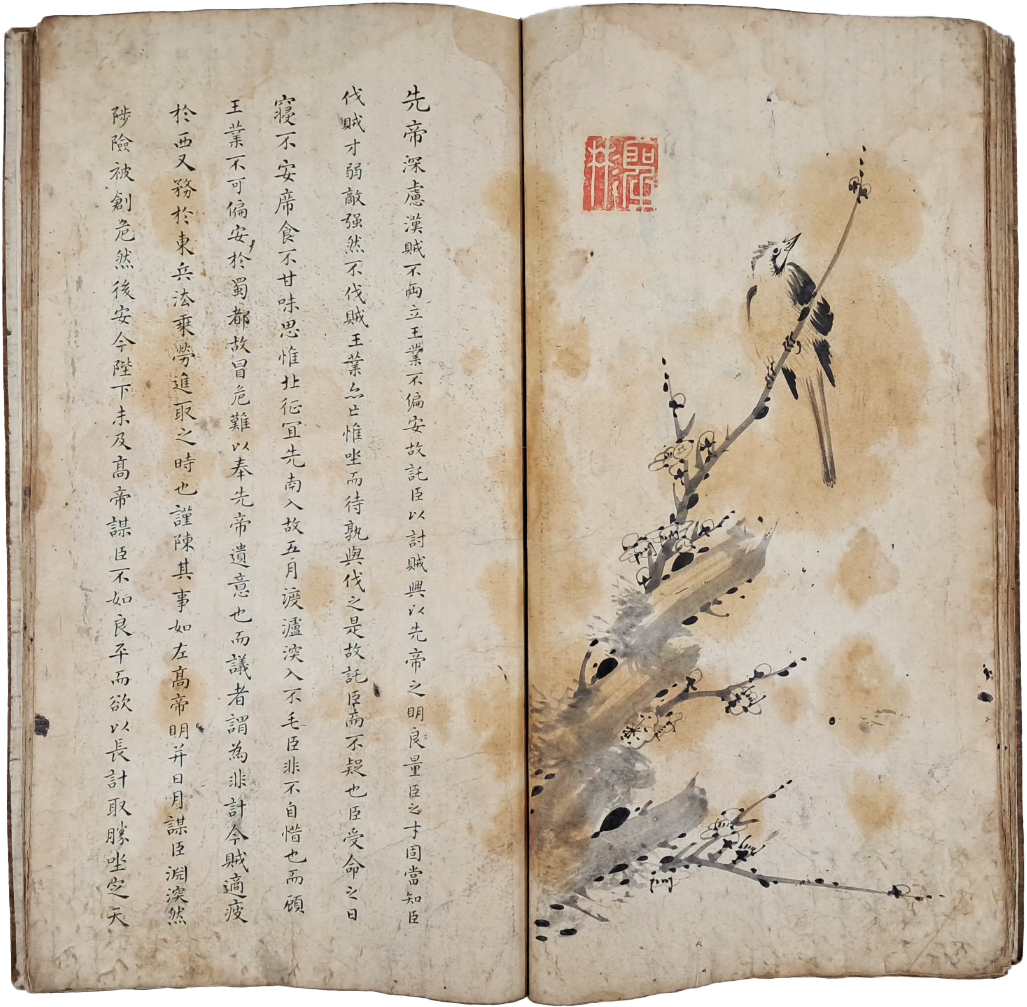 先帝深慮漢賊不両立王業不偏安故託臣以討賊興以先帝之明良量臣之才固當知臣
伐賊才弱敵强然不伐賊王業亦亡惟坐而待孰與伐之是故託臣而不疑也臣受命之日
寝不安席食不甘味思惟北征冝先南入故五月渡瀘深入不毛臣非不自惜也而顧
王業不可偏安於蜀都故冒危難以奉先帝遺意也而議者謂為非計今賊適疲
於西又務於東兵法乘勞進取之時也謹陳其事如左高帝明并日月謀臣淵深然
陟險被創危然後安今陛下未及高帝謀臣不如良平而欲以長計取勝坐定天